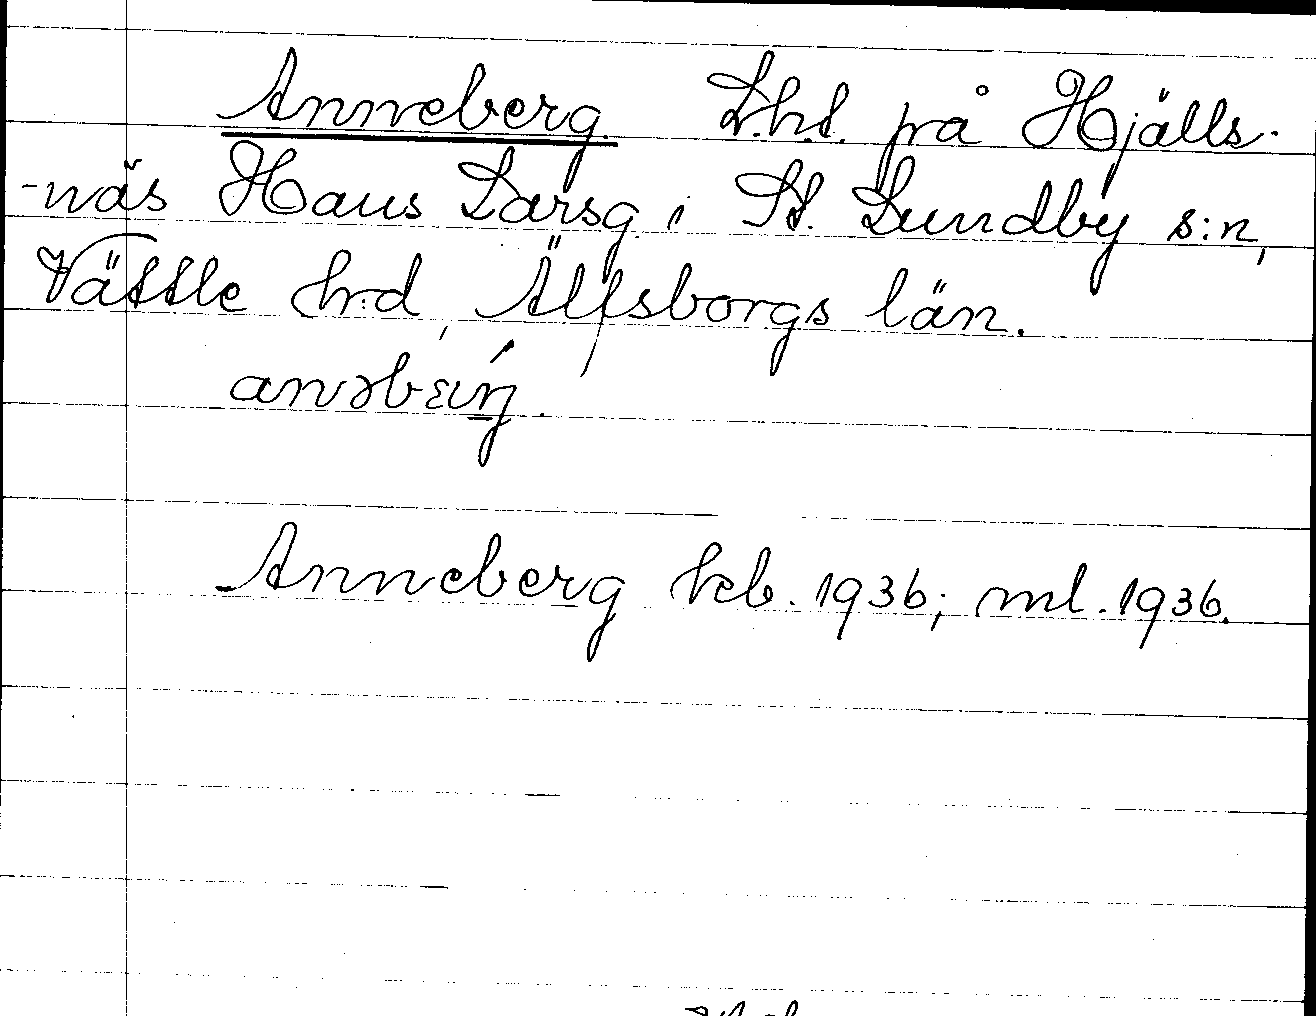 Anneberg. L.h.t. på Hjälls-
-näs Hans Larsg. i St. Lundby s:n,
Vättle h:d, Älfsborgs län.
anəbεrý.
Anneberg kcb. 1936; ml. 1936.